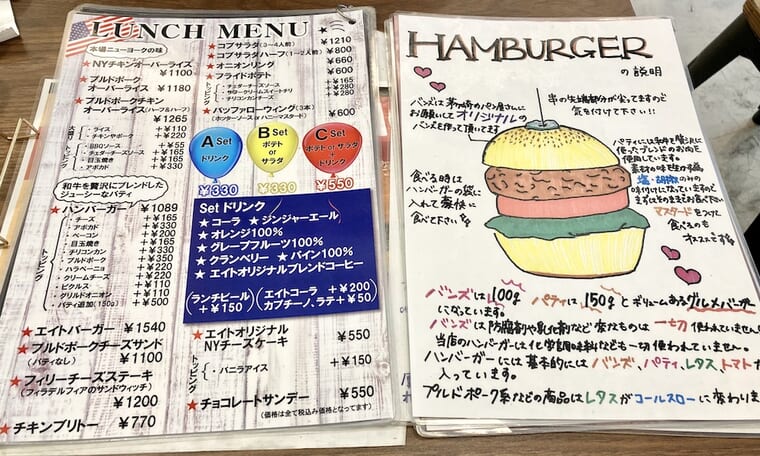 LUNCH MENU
本場ニューヨークの味
★NYチキンオーバーライス
¥1100
★プルドポーク
オーバーライス ¥1180
★プルドポークチキン
オーバーライス(ハーフ&ハーフ)
¥1265
・ライス +¥110
・チキンやポーク +¥220
トッピング
・BBQソース +¥55
・チェダーチーズソース +¥165
・目玉焼き +¥165
・アボカド +¥330
和牛を贅沢にブレンドした
ジューシーなパティ
★ハンバーガー ¥1089
トッピング
・チーズ +¥165
・アボカド +¥330
・ベーコン +¥200
・目玉焼き +¥165
・チリコンカン +¥330
・プルドポーク +¥350
・ハラペーニョ +¥220
・クリームチーズ +¥220
・ピクルス +¥110
・グリルドオニオン +¥110
・パティ追加(150g) +¥500
★エイトバーガー ¥1540
★プルドポークチーズサンド
(パティなし) ¥1100
★フィリーチーズステーキ
(フィラデルフィアのサンドウィッチ)
¥1200
★チキンブリトー ¥770
★コブサラダ(3~4人前) ¥1210
★コブサラダハーフ(1~2人前) ¥800
★オニオンリング ¥660
★フライドポテト ¥600
トッピング
・チェダーチーズソース +¥165
・サワークリームスイートチリ +¥280
・チリコンカンチーズ +¥280
★バッファローウィング(3本)
(ホッターソース or ハニーマスタード) ¥600
A Set
ドリンク
¥330
B Set
ポテト
or
サラダ
¥330
C Set
ポテト or サラダ
+
ドリンク
¥550
Set ドリンク
★コーラ ★ジンジャーエール
★オレンジ100%
★グレープフルーツ100%
★クランベリー ★パイン100%
★エイトオリジナルブレンドコーヒー
(ランチビール +¥150)
(エイトコーラ +¥200
カプチーノ、ラテ +¥50)
★エイトオリジナル
NYチーズケーキ ¥550
トッピング
・バニラアイス +¥150
★チョコレートサンデー ¥550
(価格は全て税込み価格となってます)
HAMBURGER
の説明
バンズは茅ヶ崎のパン屋さんに
お願いしてオリジナルの
バンズを作って頂いてます
串の先端部分が尖ってますので
気を付けて下さい!!
食べる時は
ハンバーガーの袋に
入れて豪快に
食べて下さい
パティには和牛を贅沢に
使ったブレンドのお肉を
使用しています。
塩・胡椒のみの
味付けになっていますので
まずはそのままでお召し下さい
マスタードをつけて
食べるのも
オススメです
バンズは100g パティは150gとボリュームあるグルメバーガー
になっています。
バンズは防腐剤や乳化剤など余分なものは一切使われていません
当店のハンバーガーは化学調味料なども一切使われていません。
ハンバーガーには基本的にはバンズ、パティ、レタス、トマトが
入っています。
プルドポーク系などの商品はレタスがコールスローに変わりま